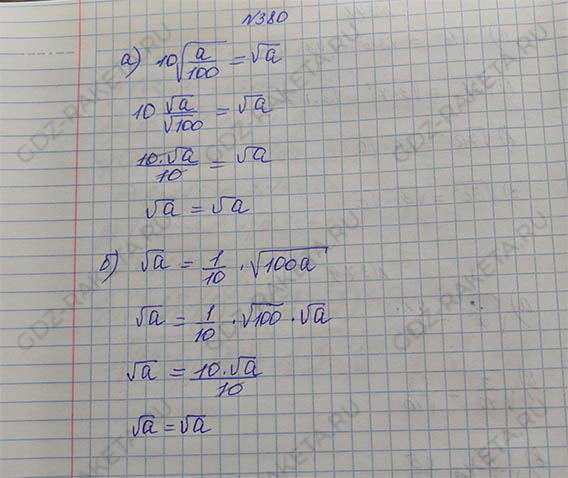 №380
а) 10√(a/100) = √a
10 √a/√100 = √a
10·√a/10 = √a
√a = √a
б) √a = 1/10 · √100a
√a = 1/10 · √100 · √a
√a = 10·√a/10
√a = √a
GDZ-RAKETA.RU
GDZ-RAKETA.RU
GDZ-RAKETA.RU
GDZ-RAKETA.RU
GDZ-RAKETA.RU
GDZ-RAKETA.RU